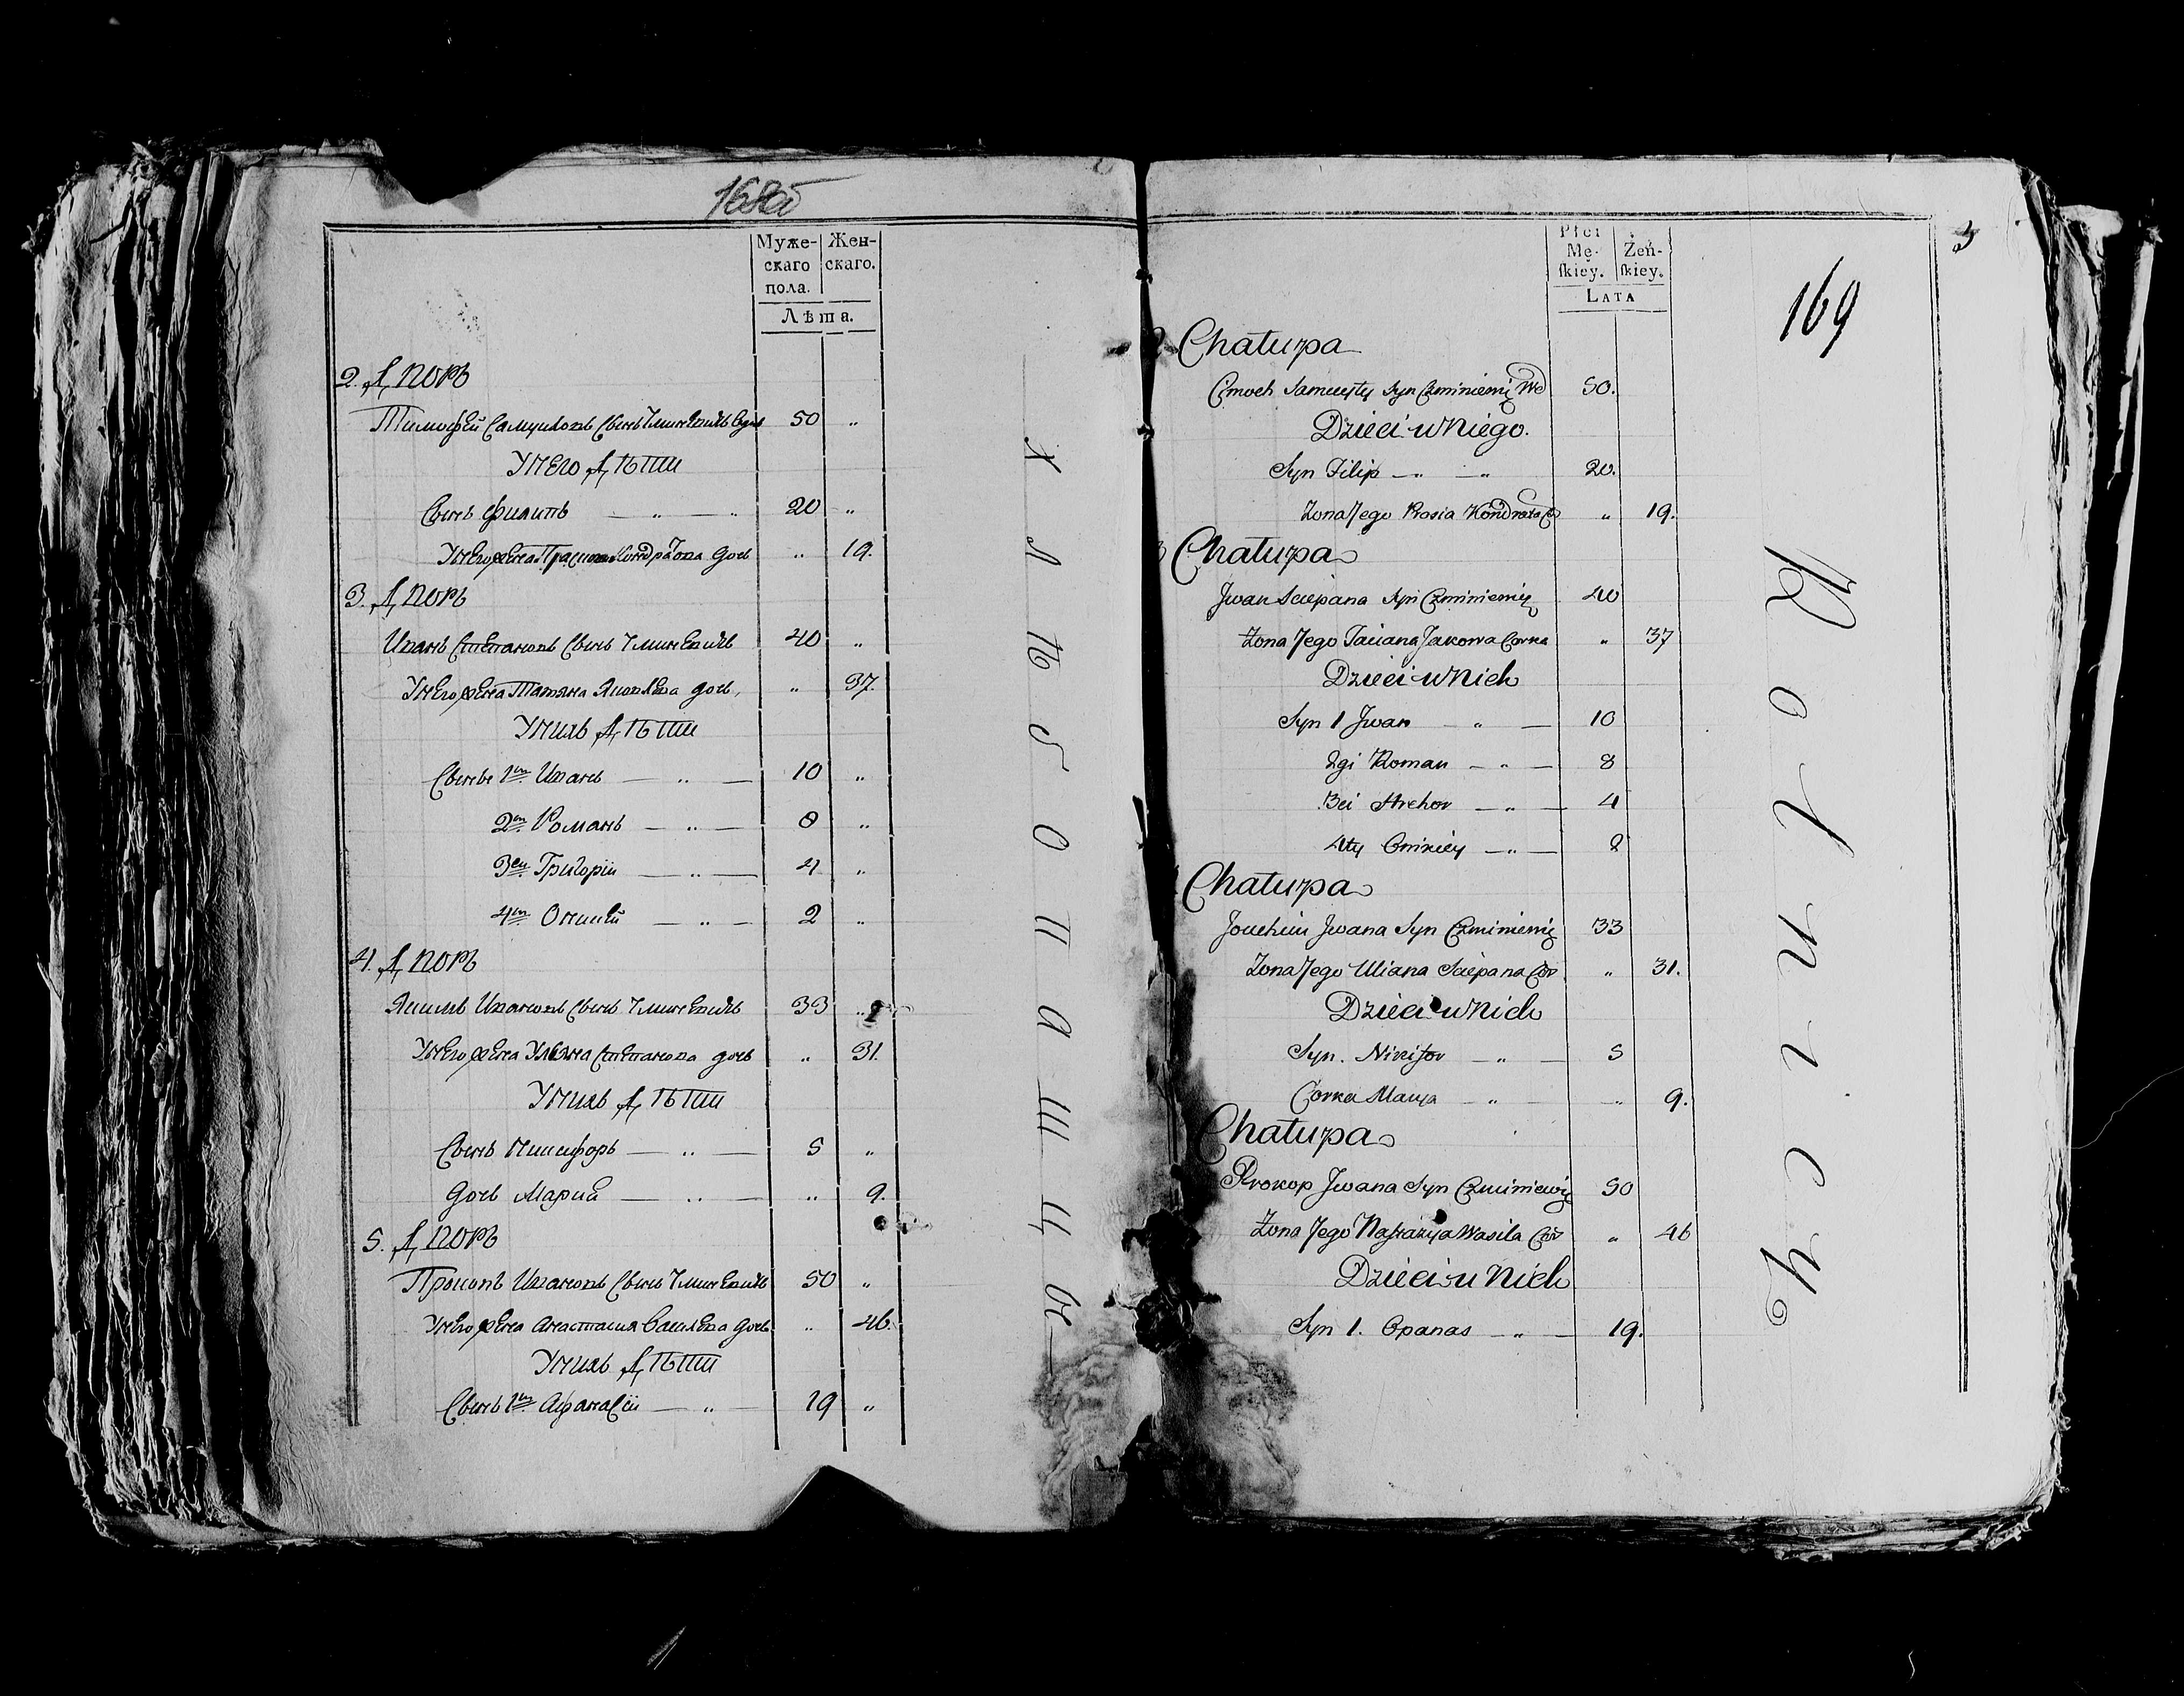 168об
Муже-
скаго
пола.
Жен-
скаго.
Лѣта.
2. Дворъ
Тимофей Самуиловъ Сынъ Чминевичъ 50 „
У Него Дѣти
Сынъ Филипъ — „ — „ 20 „
У Него жена Кондратова дочь „ 19.
3. Дворъ
Иванъ Степановъ Сынъ Чминевичъ 40 „
У Него жена Татяна Яковлева дочь, „ 37.
У Нихъ Дѣти
Сыны 1й Иванъ — „ — 10 „
2й Романъ — „ — 8 „
3ей Григорій — „ — 4 „
4й Оникей — „ — 2 „
4. Дворъ
Якимъ Ивановъ Сынъ Чминевичъ 33 „
У Него жена Ульяна Степанова дочь „ 31.
У Нихъ Дѣти
Сынъ Никифоръ — „ — 5 „
Дочь Марий — „ — „ 9.
5. Дворъ
Прокопъ Ивановъ Сынъ Чминевичъ 50 „
У Него жена Анастасия Василева дочь „ 46.
У Нихъ Дѣти
Сынъ 1й Афанасій — „ — 19 „
Хлѣбопашцы
5
169
Płci
Mę-
ſkiey.
Żeń-
ſkiey.
Lata
2 Chałupa
Cimoch Samuyły Syn Czminiewicz Wd 50.
Dzieci u Niego.
Syn Filip — „ — „ 20.
Żona Jego Prosia Kondrata Co „ 19.
3 Chałupa
Jwan Sciepana Syn Czminiewicz 40
Żona Jego Taciana Jakowa Corka „ 37
Dzieci u Nich
Syn 1 Jwan — „ — 10
2gi Roman — „ — 8
3ci Hrehor — „ — 4
4ty Onikiey — „ — 2
Chałupa
Jouchim Jwana Syn Czminiewicz 33
Żona Jego Uliana Sciepana Cor „ 31.
Dzieci u Nich
Syn. Nikifor — „ — 5
Corka Marya — „ — „ 9.
Chałupa
Prokop Jwana Syn Czminiewicz 50
Żona Jego Nastazya Wasila Cor „ 46
Dzieci u Nich
Syn 1. Opanas — „ — 19.
Rolnicy